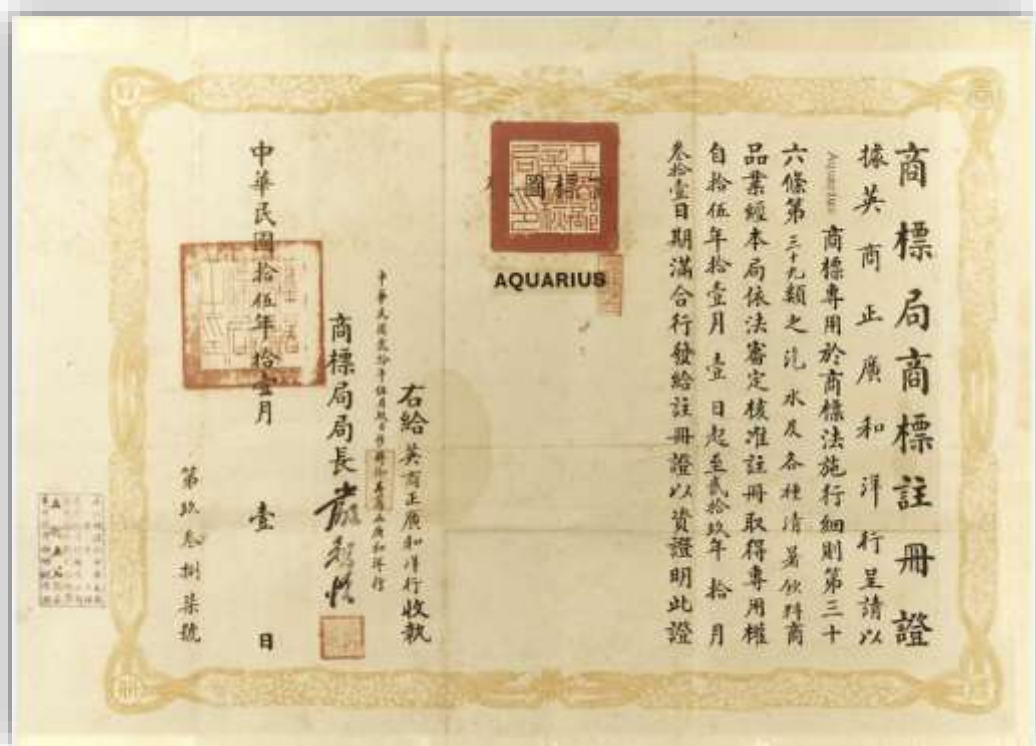 商標局商標註冊證
據英商正廣和洋行呈請以
Aquarius 商標專用於商標法施行細則第三十
六條第三十九類之汽水及各種清暑飲料商
品業經本局依法審定核准註冊取得專用權
自拾伍年拾壹月壹日起至貳拾玖年拾月
叁拾壹日期滿合行發給註冊證以資證明此證
商標圖
AQUARIUS
右給英商正廣和洋行收執
商標局局長
中華民國拾伍年拾壹月壹日
第玖叁捌柒號